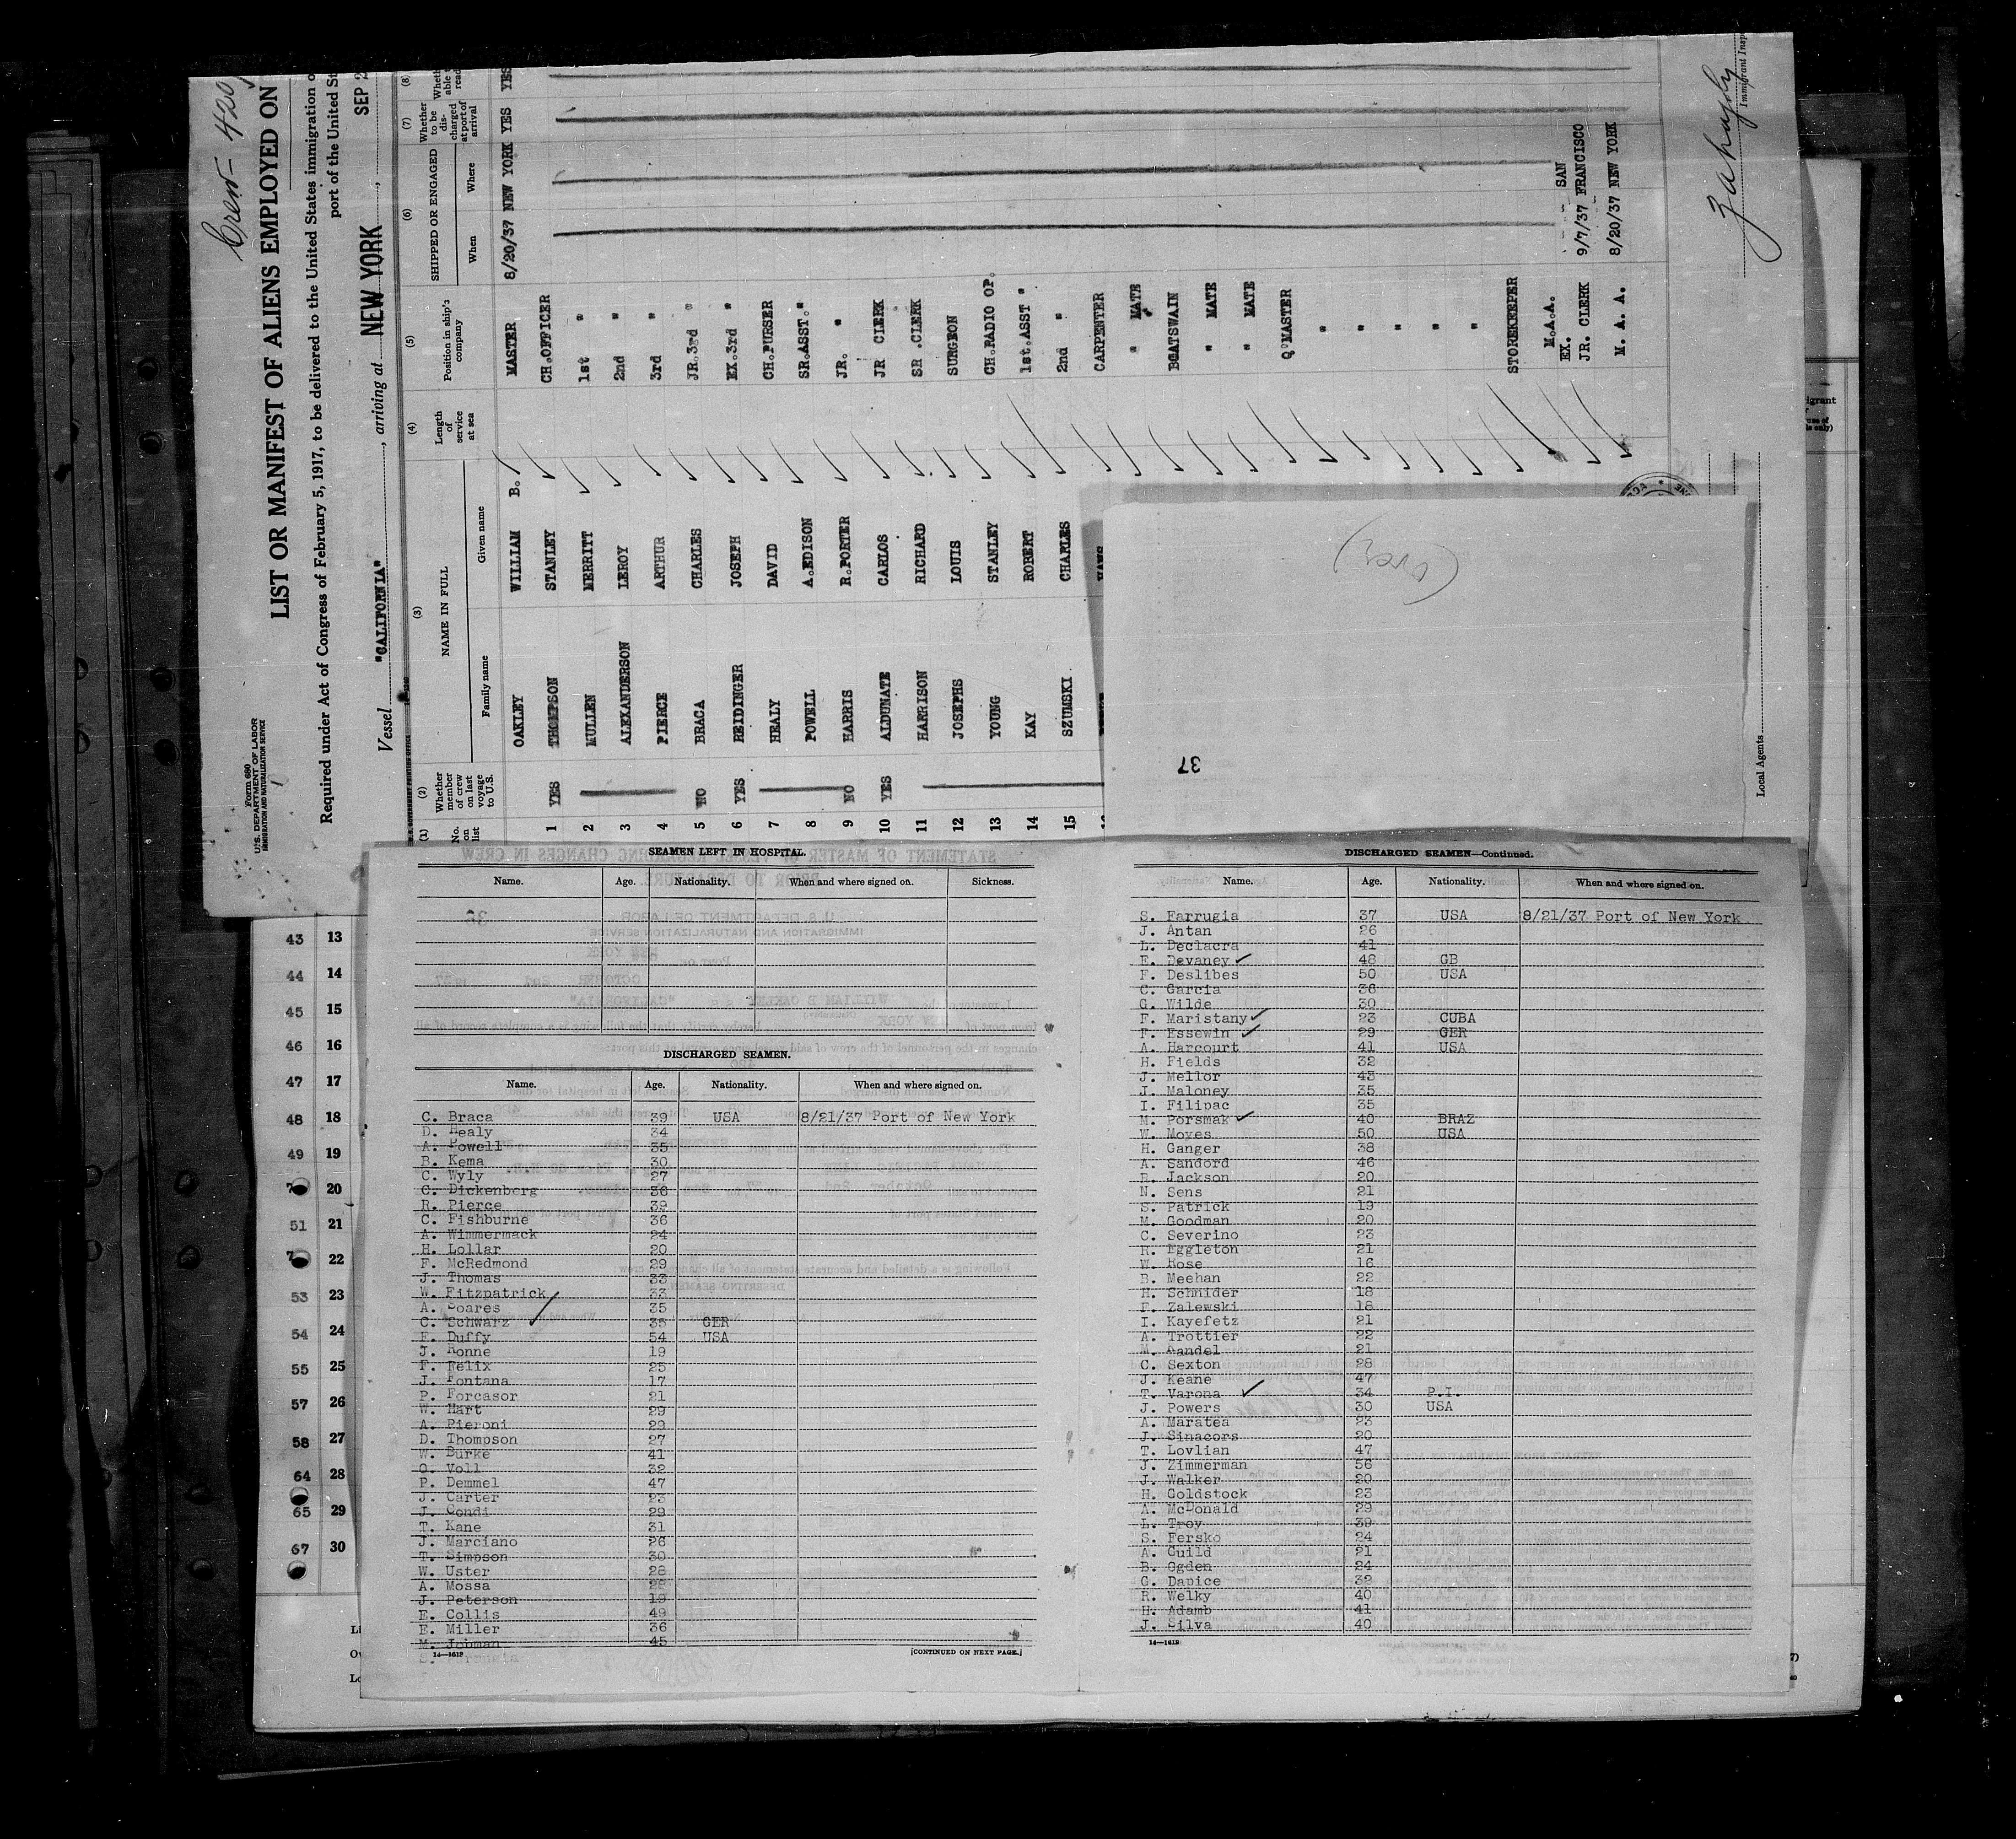 Crew - 420
LIST OR MANIFEST OF ALIENS EMPLOYED ON
Required under Act of Congress of February 5, 1917, to be delivered to the United States immigration
port of the United St
Form 680
U.S. DEPARTMENT OF LABOR
IMMIGRATION AND NATURALIZATION SERVICE
Vessel "CALIFORNIA", arriving at NEW YORK, SEP 2
(1) (2) (3) (4) (5) (6) (7) (8)
No. on list
Whether member of crew on last voyage to U.S.
NAME IN FULL
Family name Given name
Length of service at sea
Position in ship's company
SHIPPED OR ENGAGED
When Where
Whether to be discharged at port of arrival
OAKLEY WILLIAM B. MASTER 8/20/37 NEW YORK YES YES
1 YES THOMPSON STANLEY CH.OFFICER
2 MULLEN MERRITT 1st "
3 ALEXANDERSON LEROY 2nd "
4 PIERCE ARTHUR 3rd "
5 NO BRACA CHARLES JR.3rd "
6 YES REIDINGER JOSEPH EX.3rd "
7 HEALY DAVID CH.PURSER
8 POWELL A.EDISON SR.ASST."
9 NO HARRIS R.PORTER JR. "
10 YES ALDUNATE CARLOS JR CLERK
11 HARRISON RICHARD SR.CLERK
12 JOSEPHS LOUIS SURGEON
13 YOUNG STANLEY CH.RADIO OP.
14 KAY ROBERT 1st.ASST "
15 SZUMSKI CHARLES 2nd "
CARPENTER
" MATE
BOATSWAIN
" MATE
" MATE
Q'MASTER
"
"
"
"
"
STOREKEEPER
M.A.A.
EX. JR. CLERK 9/7/37 SAN FRANCISCO
M. A. A. 8/20/37 NEW YORK
Local Agents
(over)
37
43 13
44 14
45 15
46 16
47 17
48 18
49 19
20
51 21
22
53 23
54 24
55 25
57 26
58 27
64 28
65 29
67 30
SEAMEN LEFT IN HOSPITAL.
Name. Age. Nationality. When and where signed on. Sickness.
DISCHARGED SEAMEN.
Name. Age. Nationality. When and where signed on.
C. Braca 39 USA 8/21/37 Port of New York
D. Healy 34
A. Powell 35
B. Kema 30
C. Wyly 27
C. Dickenberg 36
R. Pierce 39
C. Fishburne 36
A. Wimmermack 24
H. Lollar 20
F. McRedmond 29
J. Thomas 33
W. Fitzpatrick 33
A. Soares 35
C. Schwarz 35 GER
E. Duffy 54 USA
J. Ronne 19
F. Felix 25
J. Fontana 17
P. Forcasor 21
W. Hart 29
A. Pieroni 29
D. Thompson 27
W. Burke 41
O. Voll 32
P. Demmel 47
J. Carter 23
J. Condi 29
T. Kane 31
J. Marciano 26
T. Simpson 30
W. Uster 28
A. Mossa 28
J. Peterson 19
E. Collis 49
E. Miller 36
M. Jobman 45
14—1618 [CONTINUED ON NEXT PAGE.]
DISCHARGED SEAMEN—Continued.
Name. Age. Nationality. When and where signed on.
S. Farrugia 37 USA 8/21/37 Port of New York
J. Antan 26
L. Declacra 41
E. Devaney 48 GB
F. Deslibes 50 USA
C. Garcia 36
G. Wilde 30
F. Maristany 23 CUBA
F. Essewin 29 GER
A. Harcourt 41 USA
H. Fields 32
J. Mellor 43
J. Maloney 35
I. Filipac 35
M. Porsmak 40 BRAZ
W. Moyes 50 USA
H. Ganger 38
A. Sandord 46
R. Jackson 20
N. Sens 21
S. Patrick 19
M. Goodman 20
C. Severino 23
R. Eggleton 21
W. Rose 16
B. Meehan 22
H. Schnider 18
F. Zalewski 18
I. Kayefetz 21
A. Trottier 22
M. Mandel 21
C. Sexton 28
J. Keane 47
T. Varona 34 P.I.
J. Powers 30 USA
A. Maratea 23
J. Sinacors 20
T. Lovlian 47
J. Zimmerman 56
J. Walker 20
H. Goldstock 23
A. McDonald 29
L. Troy 39
S. Fersko 24
A. Guild 21
B. Ogden 24
G. Dapice 32
R. Welky 40
H. Adamb 41
J. Silva 40
14—1618